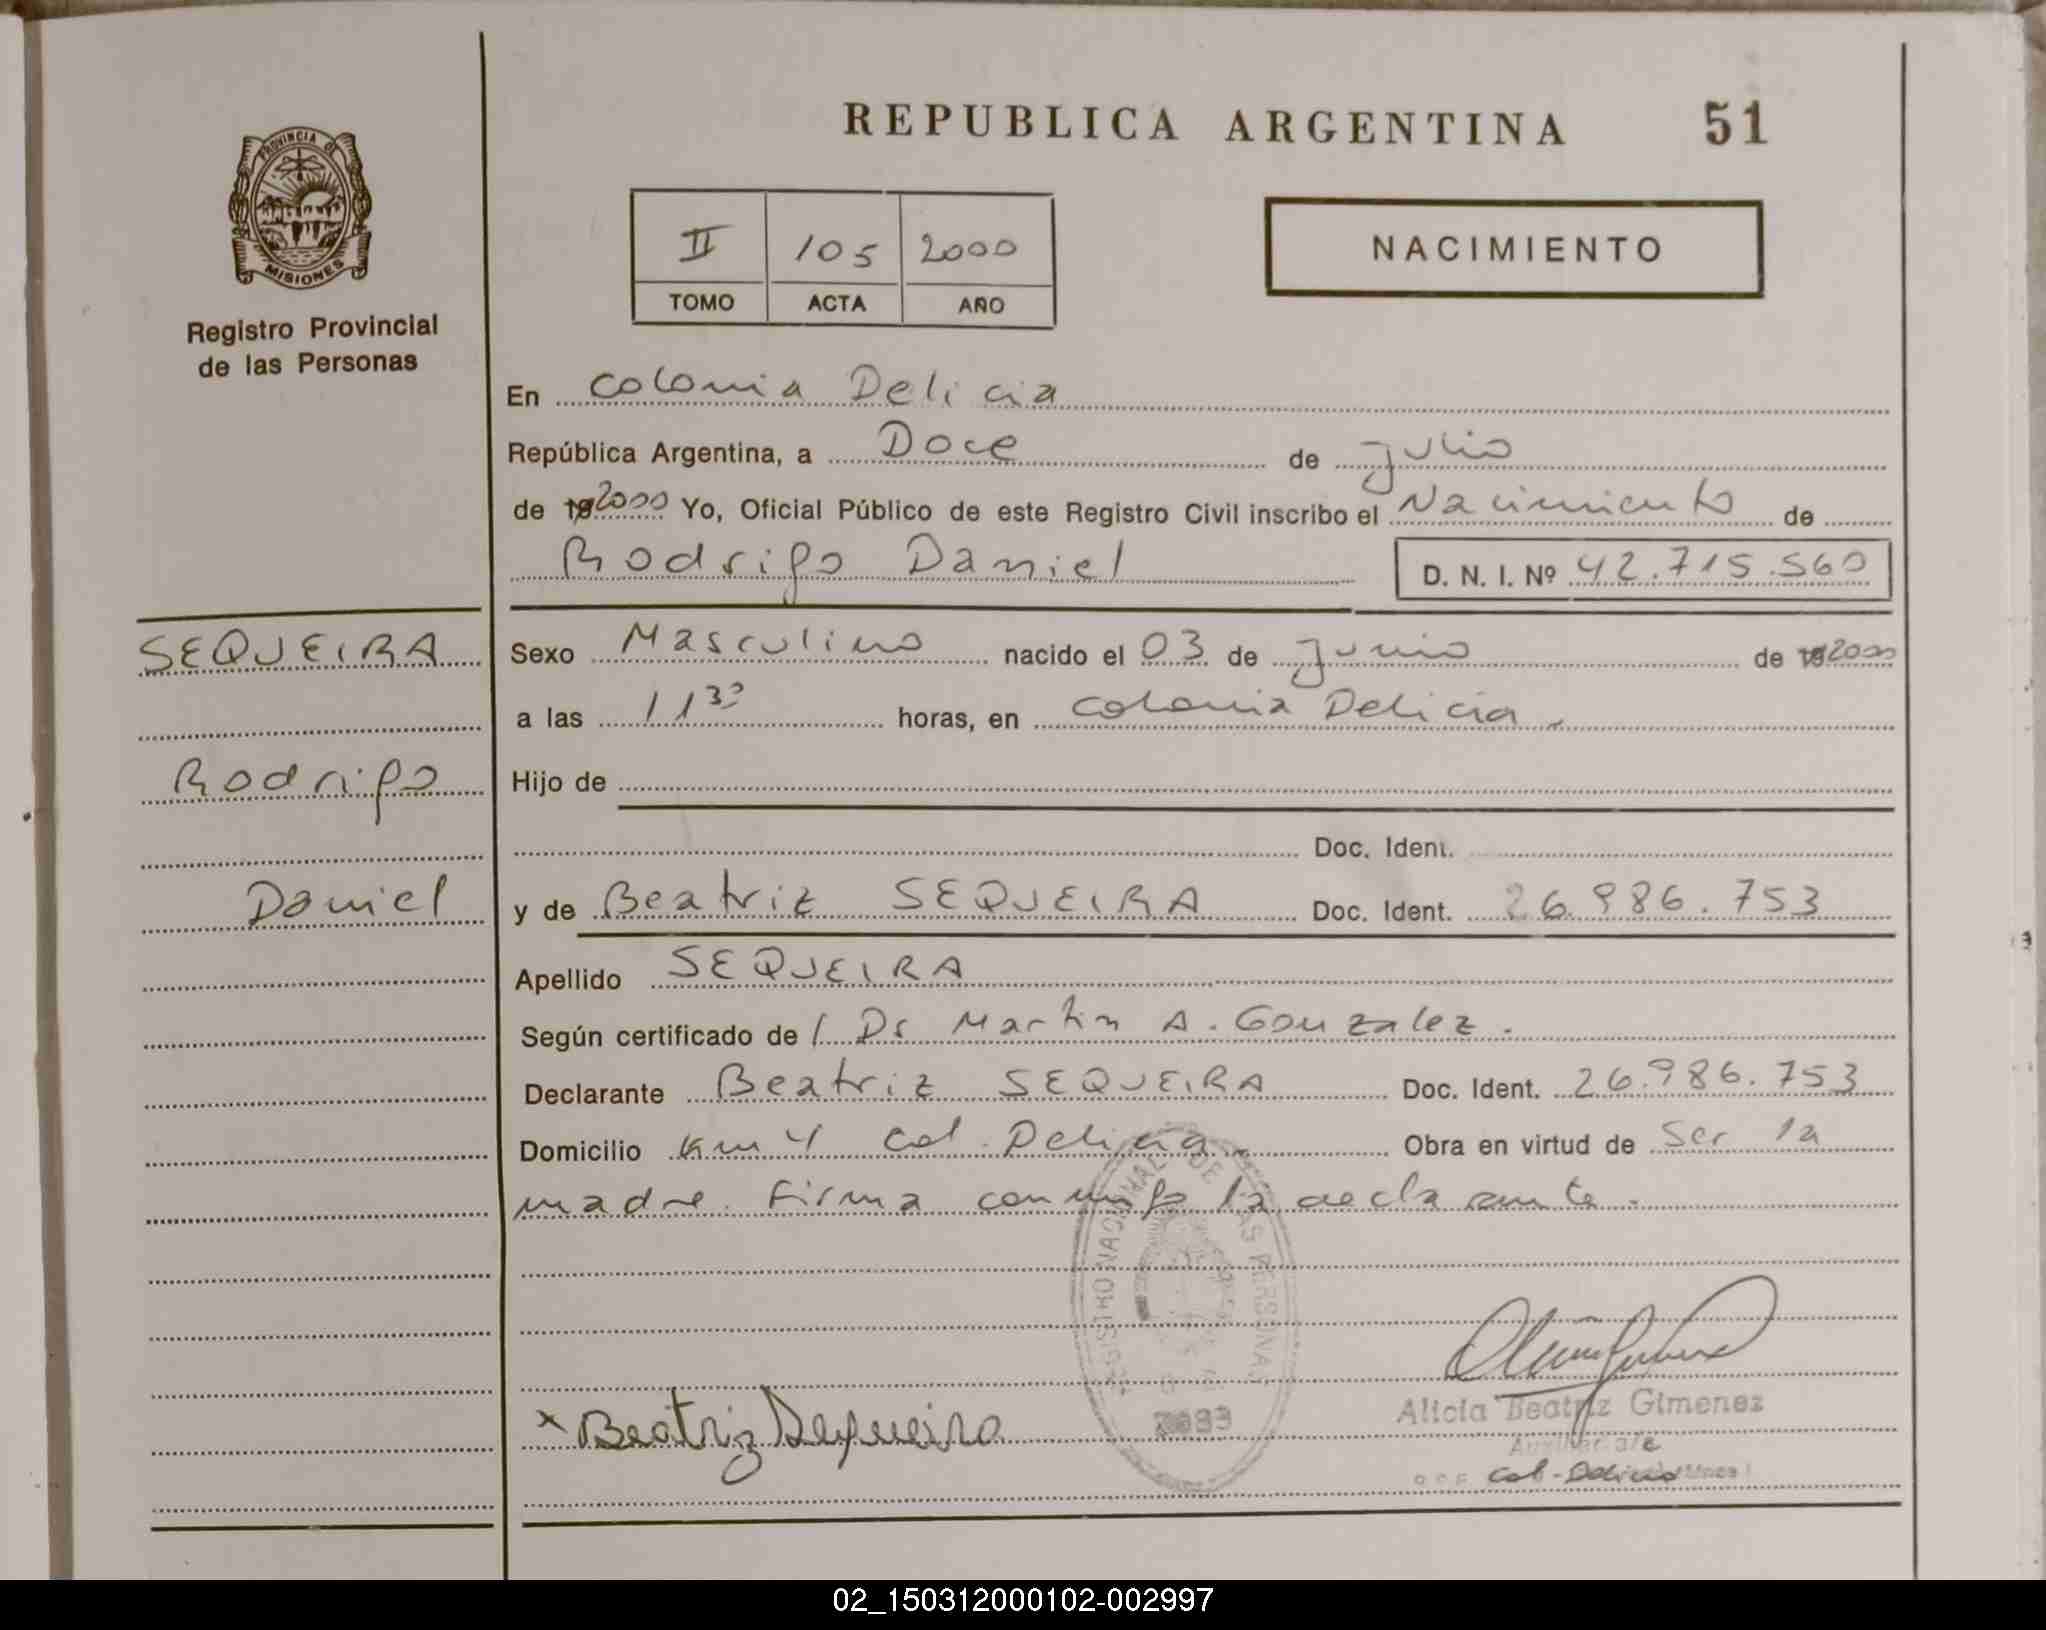 REPUBLICA ARGENTINA 51
PROVINCIA DE
MISIONES
Registro Provincial
de las Personas
II 105 2000
TOMO ACTA AÑO
NACIMIENTO
En Colonia Delicia
República Argentina, a Doce de Julio
de 19 2000 Yo, Oficial Público de este Registro Civil inscribo el Nacimiento de
Rodrigo Daniel D. N. I. Nº 42.715.560
SEQUEIRA
Rodrigo
Daniel
Sexo Masculino nacido el 03 de Junio de 19 2000
a las 11 30 horas, en Colonia Delicia.
Hijo de
Doc. Ident.
y de Beatriz SEQUEIRA Doc. Ident. 26.986.753
Apellido SEQUEIRA
Según certificado de / Dr Martin A. Gonzalez.
Declarante Beatriz SEQUEIRA Doc. Ident. 26.986.753
Domicilio Km 4 Col. Delicia. Obra en virtud de Ser la
madre. Firma conmigo la declarante.
REGISTRO NACIONAL DE LAS PERSONAS
x Beatriz Sequeira
Alicia Beatriz Gimenez
Auxiliar a/c
Col. Delicia
02_150312000102-002997